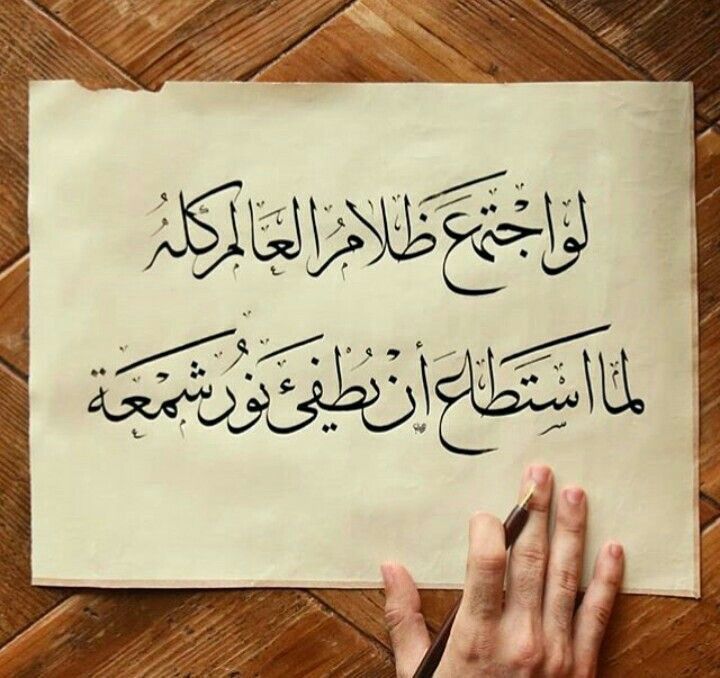 لو اجْتمَعَ ظَلامُ العَالم كُلهُ
لما اسْتَطَاعَ أنْ يُطْفئَ نَوُرُ شَمْعَة